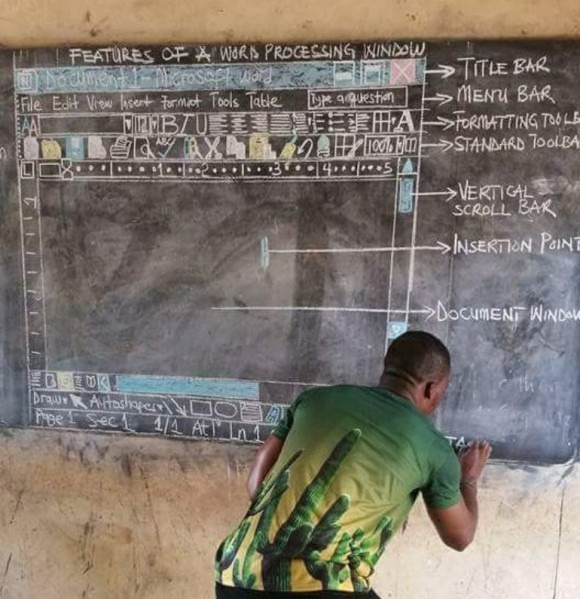 FEATURES OF A WORD PROCESSING WINDOW
Document 1 - Microsoft word
TITLE BAR
File Edit View Insert Format Tools Table
Type a question
MENU BAR
B I U
A
FORMATTING TOOLB
ABC
100%
STANDARD TOOLBA
1 2 3 4 5
VERTICAL
SCROLL BAR
INSERTION POINT
DOCUMENT WINDOW
Draw Autoshapes
A
Page 1 Sec 1 1/1 At 1" Ln 1
TA